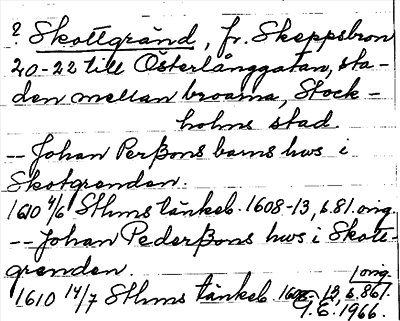 ? Skottgränd, fr. Skeppsbron
20-22 till Österlånggatan, sta-
den mellan broarna, Stock-
holms stad.
-- Johan Perßons barns hws i
Skotgrenden.
1610 4/6 Sthms tänkeb. 1608-13, s.81. orig.
-- Johan Pederßons hws i Skott-
grenden.
1610 14/7 Sthms tänkeb. 1608-13, s.86/. orig.
G.E. 1966.